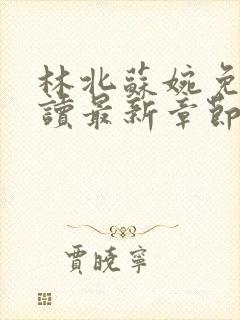 林北蘇婉免
讀最新章節
賈曉寧